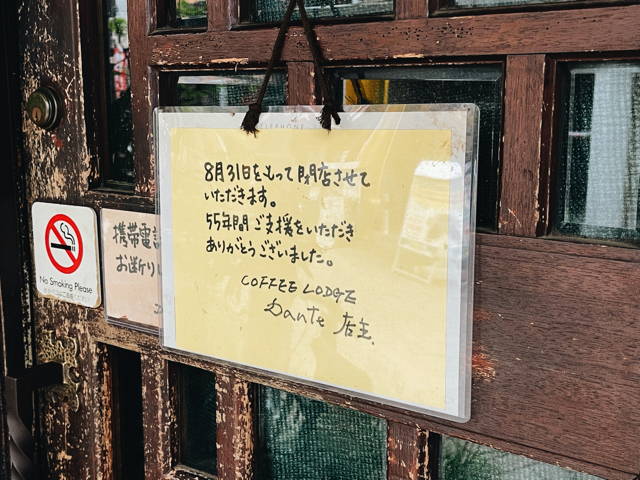 TELEPHONE
8月31日をもって閉店させて
いただきます。
55年間ご支援をいただき
ありがとうございました。
COFFEE LODGE
Dante 店主.
No Smoking Please
携帯電話
お断り